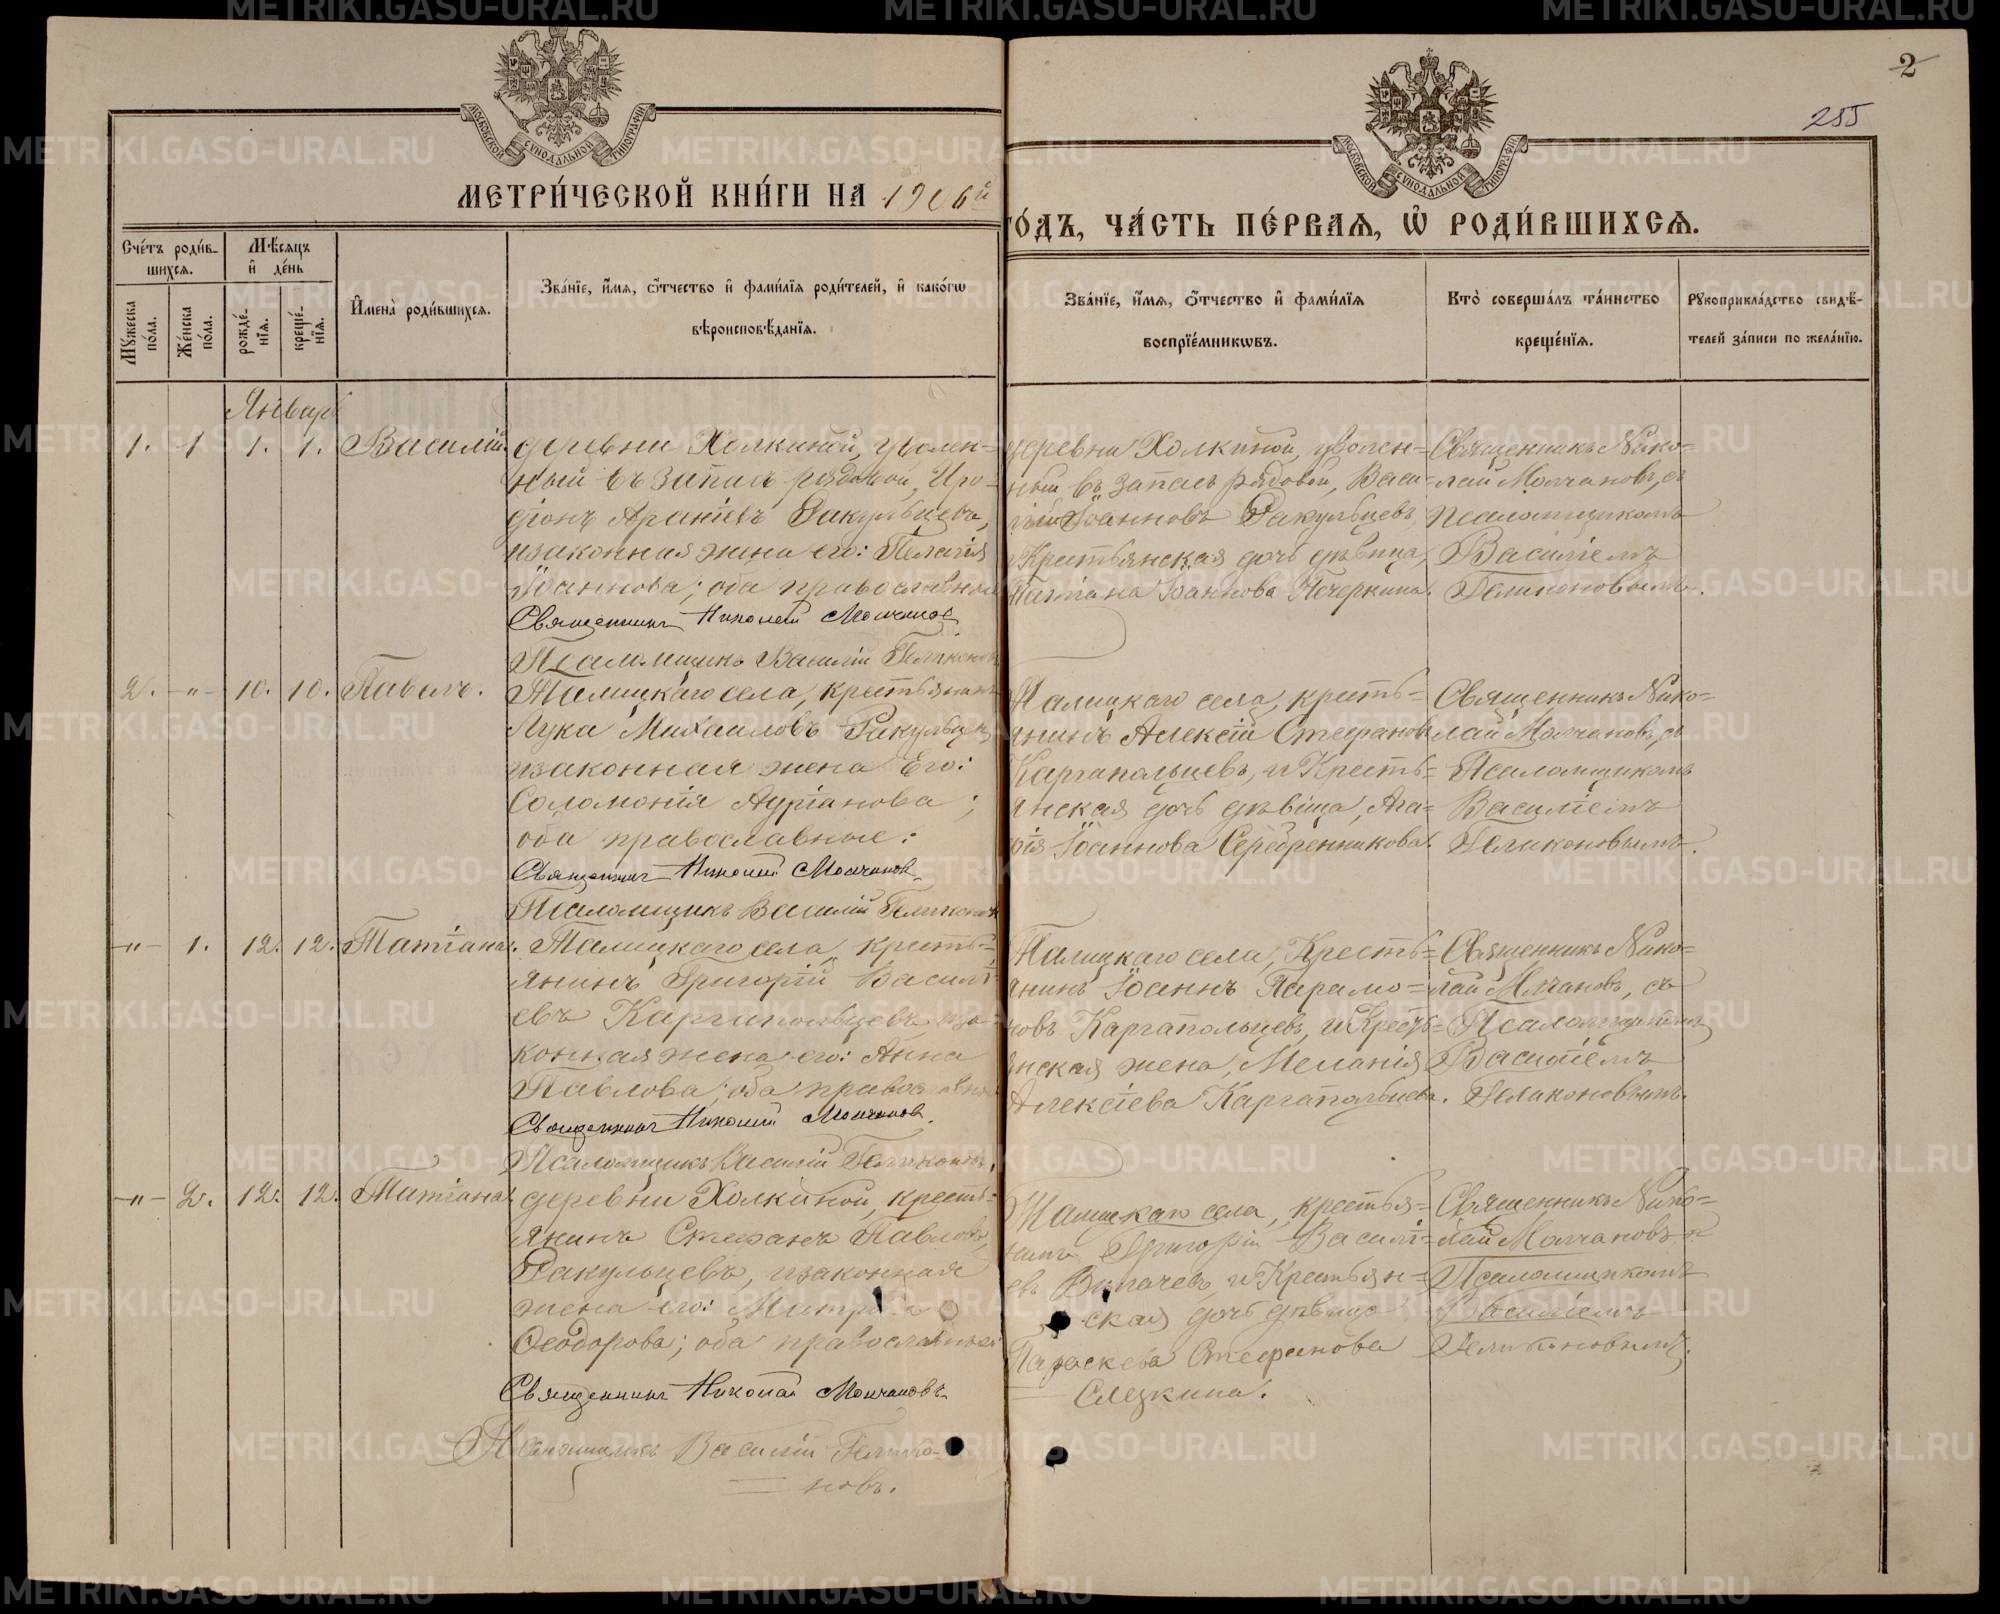 2
255
МОСКОВСКОЙ СУНОДАЛЬНОЙ ТИПОГРАФІИ
МОСКОВСКОЙ СУНОДАЛЬНОЙ ТИПОГРАФІИ
МЕТРИ́ЧЕСКОЙ КНИ́ГИ НА 1906й
ГО́ДЪ, ЧА́СТЬ ПЕ́РВАѦ, Ѡ҆ РОДИ́ВШИХСѦ.
Сче́тъ роди́в-
шихсѧ.
Мꙋ́жеска по́ла.
Же́нска по́ла.
Мѣ́сѧцъ
и҆ де́нь
рожде́-
нїѧ.
креще́-
нїѧ.
И҆мена̀ роди́вшихсѧ.
Зва́нїе, и҆́мѧ, ѻ҆́тчество и҆ фами́лїѧ роди́телей, и҆ како́гѡ
вѣроисповѣ́данїѧ.
Зва́нїе, и҆́мѧ, ѻ҆́тчество и҆ фами́лїѧ
воспрїе́мникѡвъ.
Кто̀ соверша́лъ та́инство
креще́нїѧ.
Рꙋкоприкла́дство свидѣ́-
телей за́писи по жела́нїю.
Январь
1. 1 1. 1. Василій.
деревни Холкиной, уволен-
ный въ запасъ рядовой, Иро-
діонъ Ракульцевъ,
и законная жена его: Пелагія
Іоаннова; оба православные
Священникъ Николай Молчановъ
Псаломщикъ Василій Геликоновъ
деревни Холкиной, уволен-
ный въ запасъ рядовой, Васи-
лій Іоанновъ Ракульцевъ
и Крестьянская дочь дѣвица,
Татіана Іоаннова Печеркина.
Священникъ Нико-
лай Молчановъ, съ
псаломщикомъ
Василіемъ
Геликоновымъ.
2. -"- 10. 10. Павелъ.
Талицкаго села, крестьянинъ
Лука Михаиловъ Ракульцевъ,
и законная жена его:
Соломонія Адріанова;
оба православные:
Священникъ Николай Молчановъ
Псаломщикъ Василій Геликоновъ
Талицкаго села, кресть-
янинъ Алексій Стефановъ
Каргапольцевъ, и Кресть-
янская дочь дѣвица, Ага-
фія Іоаннова Серебренникова.
Священникъ Нико-
лай Молчановъ, съ
Псаломщикомъ
Василіемъ
Геликоновымъ.
-"- 1. 12. 12. Татіана.
Талицкаго села, кресть-
янинъ Григорій Василі-
евъ Каргапольцевъ и за-
конная жена его: Анна
Павлова; оба православные
Священникъ Николай Молчановъ.
Псаломщикъ Василій Геликоновъ.
Талицкаго села, Кресть-
янинъ Іоаннъ Парамо-
новъ Каргапольцевъ, и Кресть-
янская жена, Меланія
Алексіева Каргапольцева.
Священникъ Нико-
лай Молчановъ, съ
Псаломщикомъ
Василіемъ
Геликоновымъ.
-"- 2. 12. 12. Татіана
деревни Холкиной, кресть-
янинъ Стефанъ Павловъ
Ракульцевъ, и законная
жена его:
Ѳеодорова; оба православные
Священникъ Николай Молчановъ
Псаломщикъ Василій Гелико-
новъ.
Талицкаго села, крестья-
нинъ Григорій Василі-
евъ и Крестьян-
ская дочь дѣвица
Параскева Стефанова
Слезкина.
Священникъ Нико-
лай Молчановъ съ
Псаломщикомъ
Василіемъ
Геликоновымъ.
METRIKI.GASO-URAL.RU